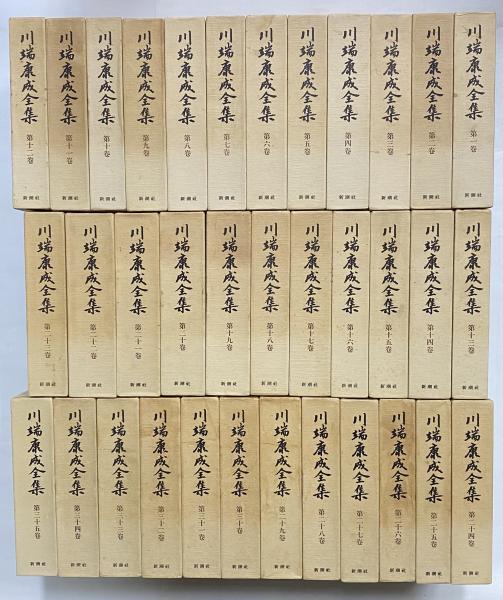 川端康成全集
第一巻
新潮社
川端康成全集
第二巻
新潮社
川端康成全集
第三巻
新潮社
川端康成全集
第四巻
新潮社
川端康成全集
第五巻
新潮社
川端康成全集
第六巻
新潮社
川端康成全集
第七巻
新潮社
川端康成全集
第八巻
新潮社
川端康成全集
第九巻
新潮社
川端康成全集
第十巻
新潮社
川端康成全集
第十一巻
新潮社
川端康成全集
第十二巻
新潮社
川端康成全集
第十三巻
新潮社
川端康成全集
第十四巻
新潮社
川端康成全集
第十五巻
新潮社
川端康成全集
第十六巻
新潮社
川端康成全集
第十七巻
新潮社
川端康成全集
第十八巻
新潮社
川端康成全集
第十九巻
新潮社
川端康成全集
第二十巻
新潮社
川端康成全集
第二十一巻
新潮社
川端康成全集
第二十二巻
新潮社
川端康成全集
第二十三巻
新潮社
川端康成全集
第二十四巻
新潮社
川端康成全集
第二十五巻
新潮社
川端康成全集
第二十六巻
新潮社
川端康成全集
第二十七巻
新潮社
川端康成全集
第二十八巻
新潮社
川端康成全集
第二十九巻
新潮社
川端康成全集
第三十巻
新潮社
川端康成全集
第三十一巻
新潮社
川端康成全集
第三十二巻
新潮社
川端康成全集
第三十三巻
新潮社
川端康成全集
第三十四巻
新潮社
川端康成全集
第三十五巻
新潮社